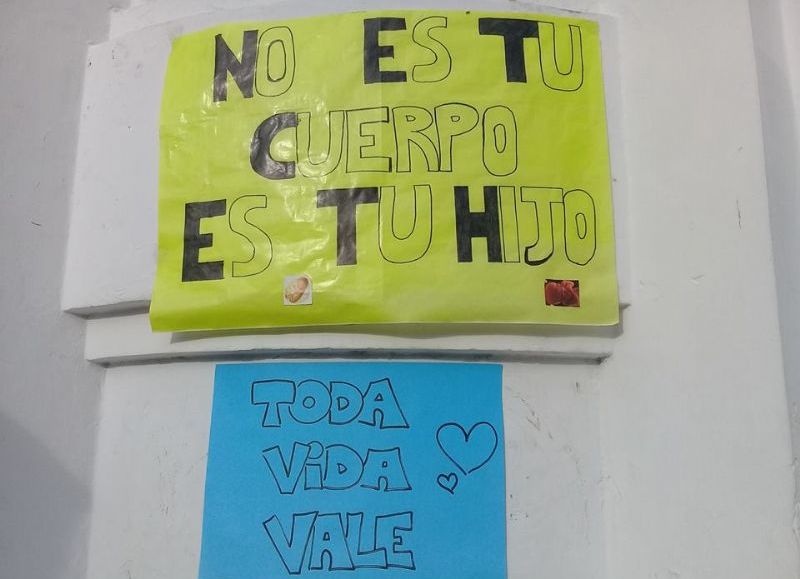 NO ES TU
CUERPO
ES TU HIJO
TODA
ViDA
VALE